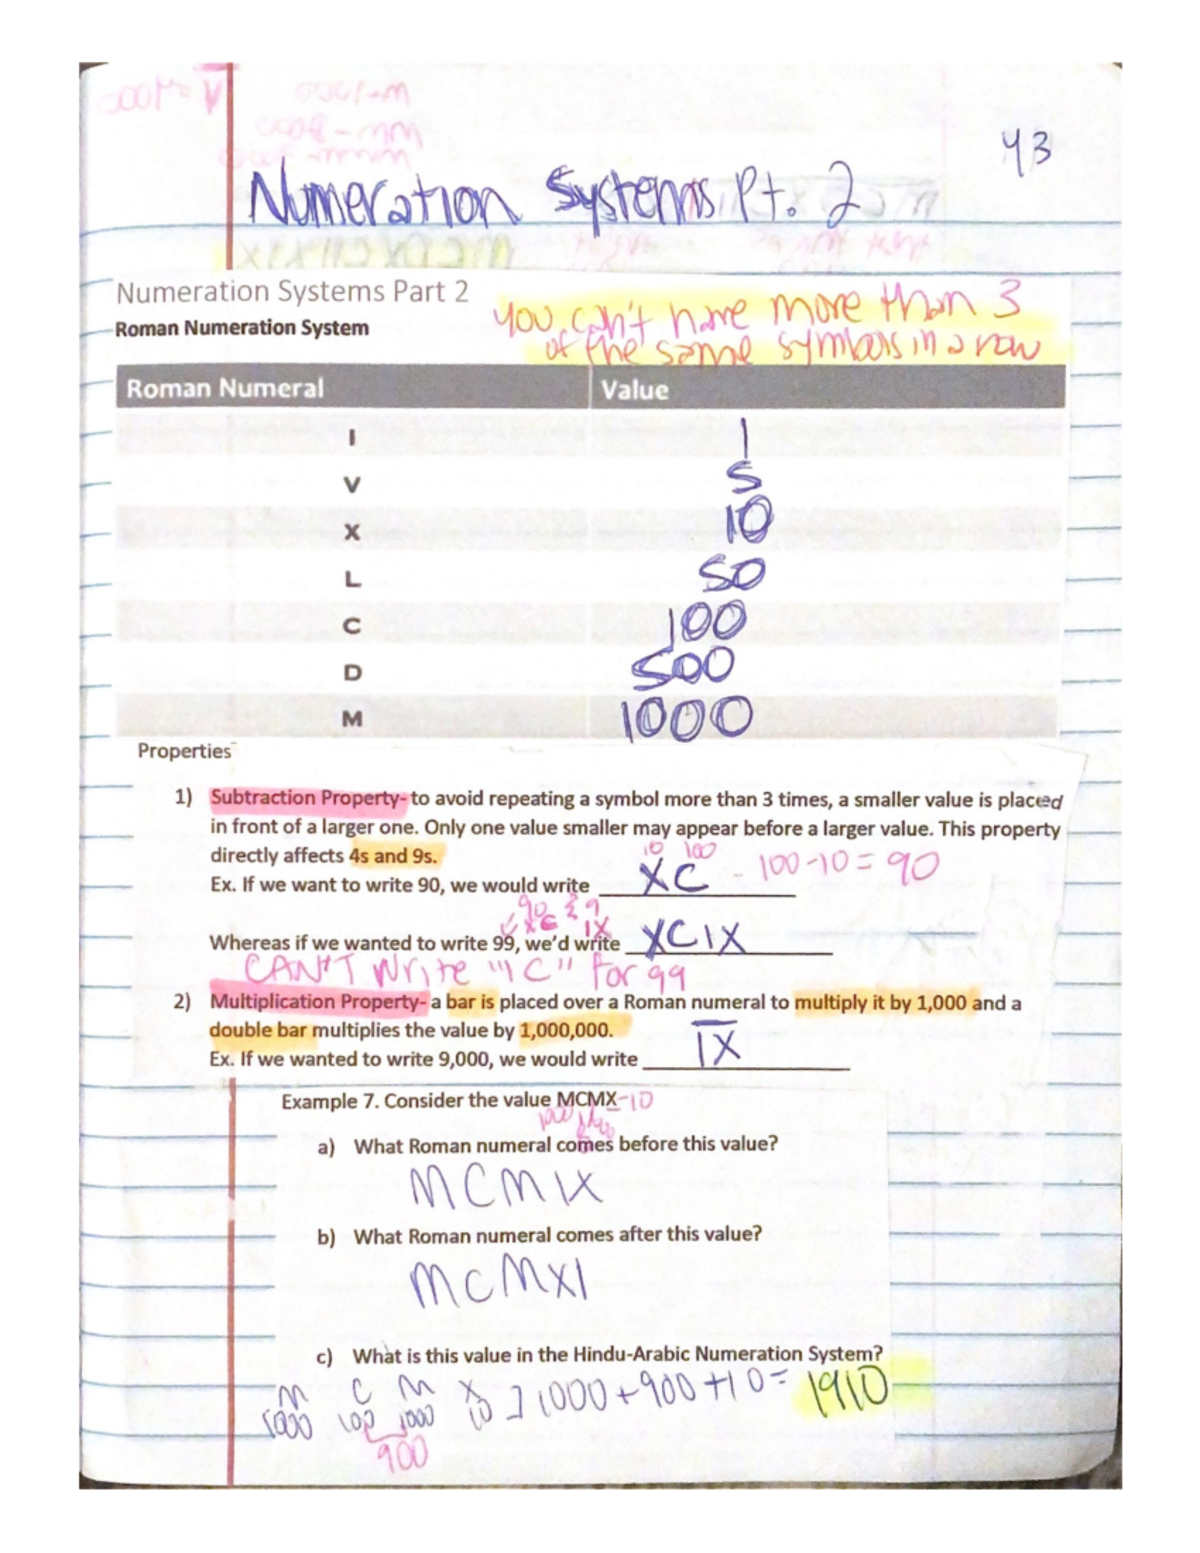 43
Numeration Systems Pt. 2
Numeration Systems Part 2
You can't have more than 3
of the same symbols in a row
Roman Numeration System
Roman Numeral Value
I 1
V 5
X 10
L 50
C 100
D 500
M 1000
Properties
1) Subtraction Property- to avoid repeating a symbol more than 3 times, a smaller value is placed
in front of a larger one. Only one value smaller may appear before a larger value. This property
directly affects 4s and 9s.
10 100
Ex. If we want to write 90, we would write XC - 100-10=90
90 & 9
XC IX
Whereas if we wanted to write 99, we'd write XCIX
CAN'T write "IC" for 99
2) Multiplication Property- a bar is placed over a Roman numeral to multiply it by 1,000 and a
double bar multiplies the value by 1,000,000.
Ex. If we wanted to write 9,000, we would write I̅X̅
Example 7. Consider the value MCMX-10
1000
a) What Roman numeral comes before this value?
MCMIX
b) What Roman numeral comes after this value?
MCMXI
c) What is this value in the Hindu-Arabic Numeration System?
M C M X ] 1000+900+10= 1910
1000 100 1000 10
900